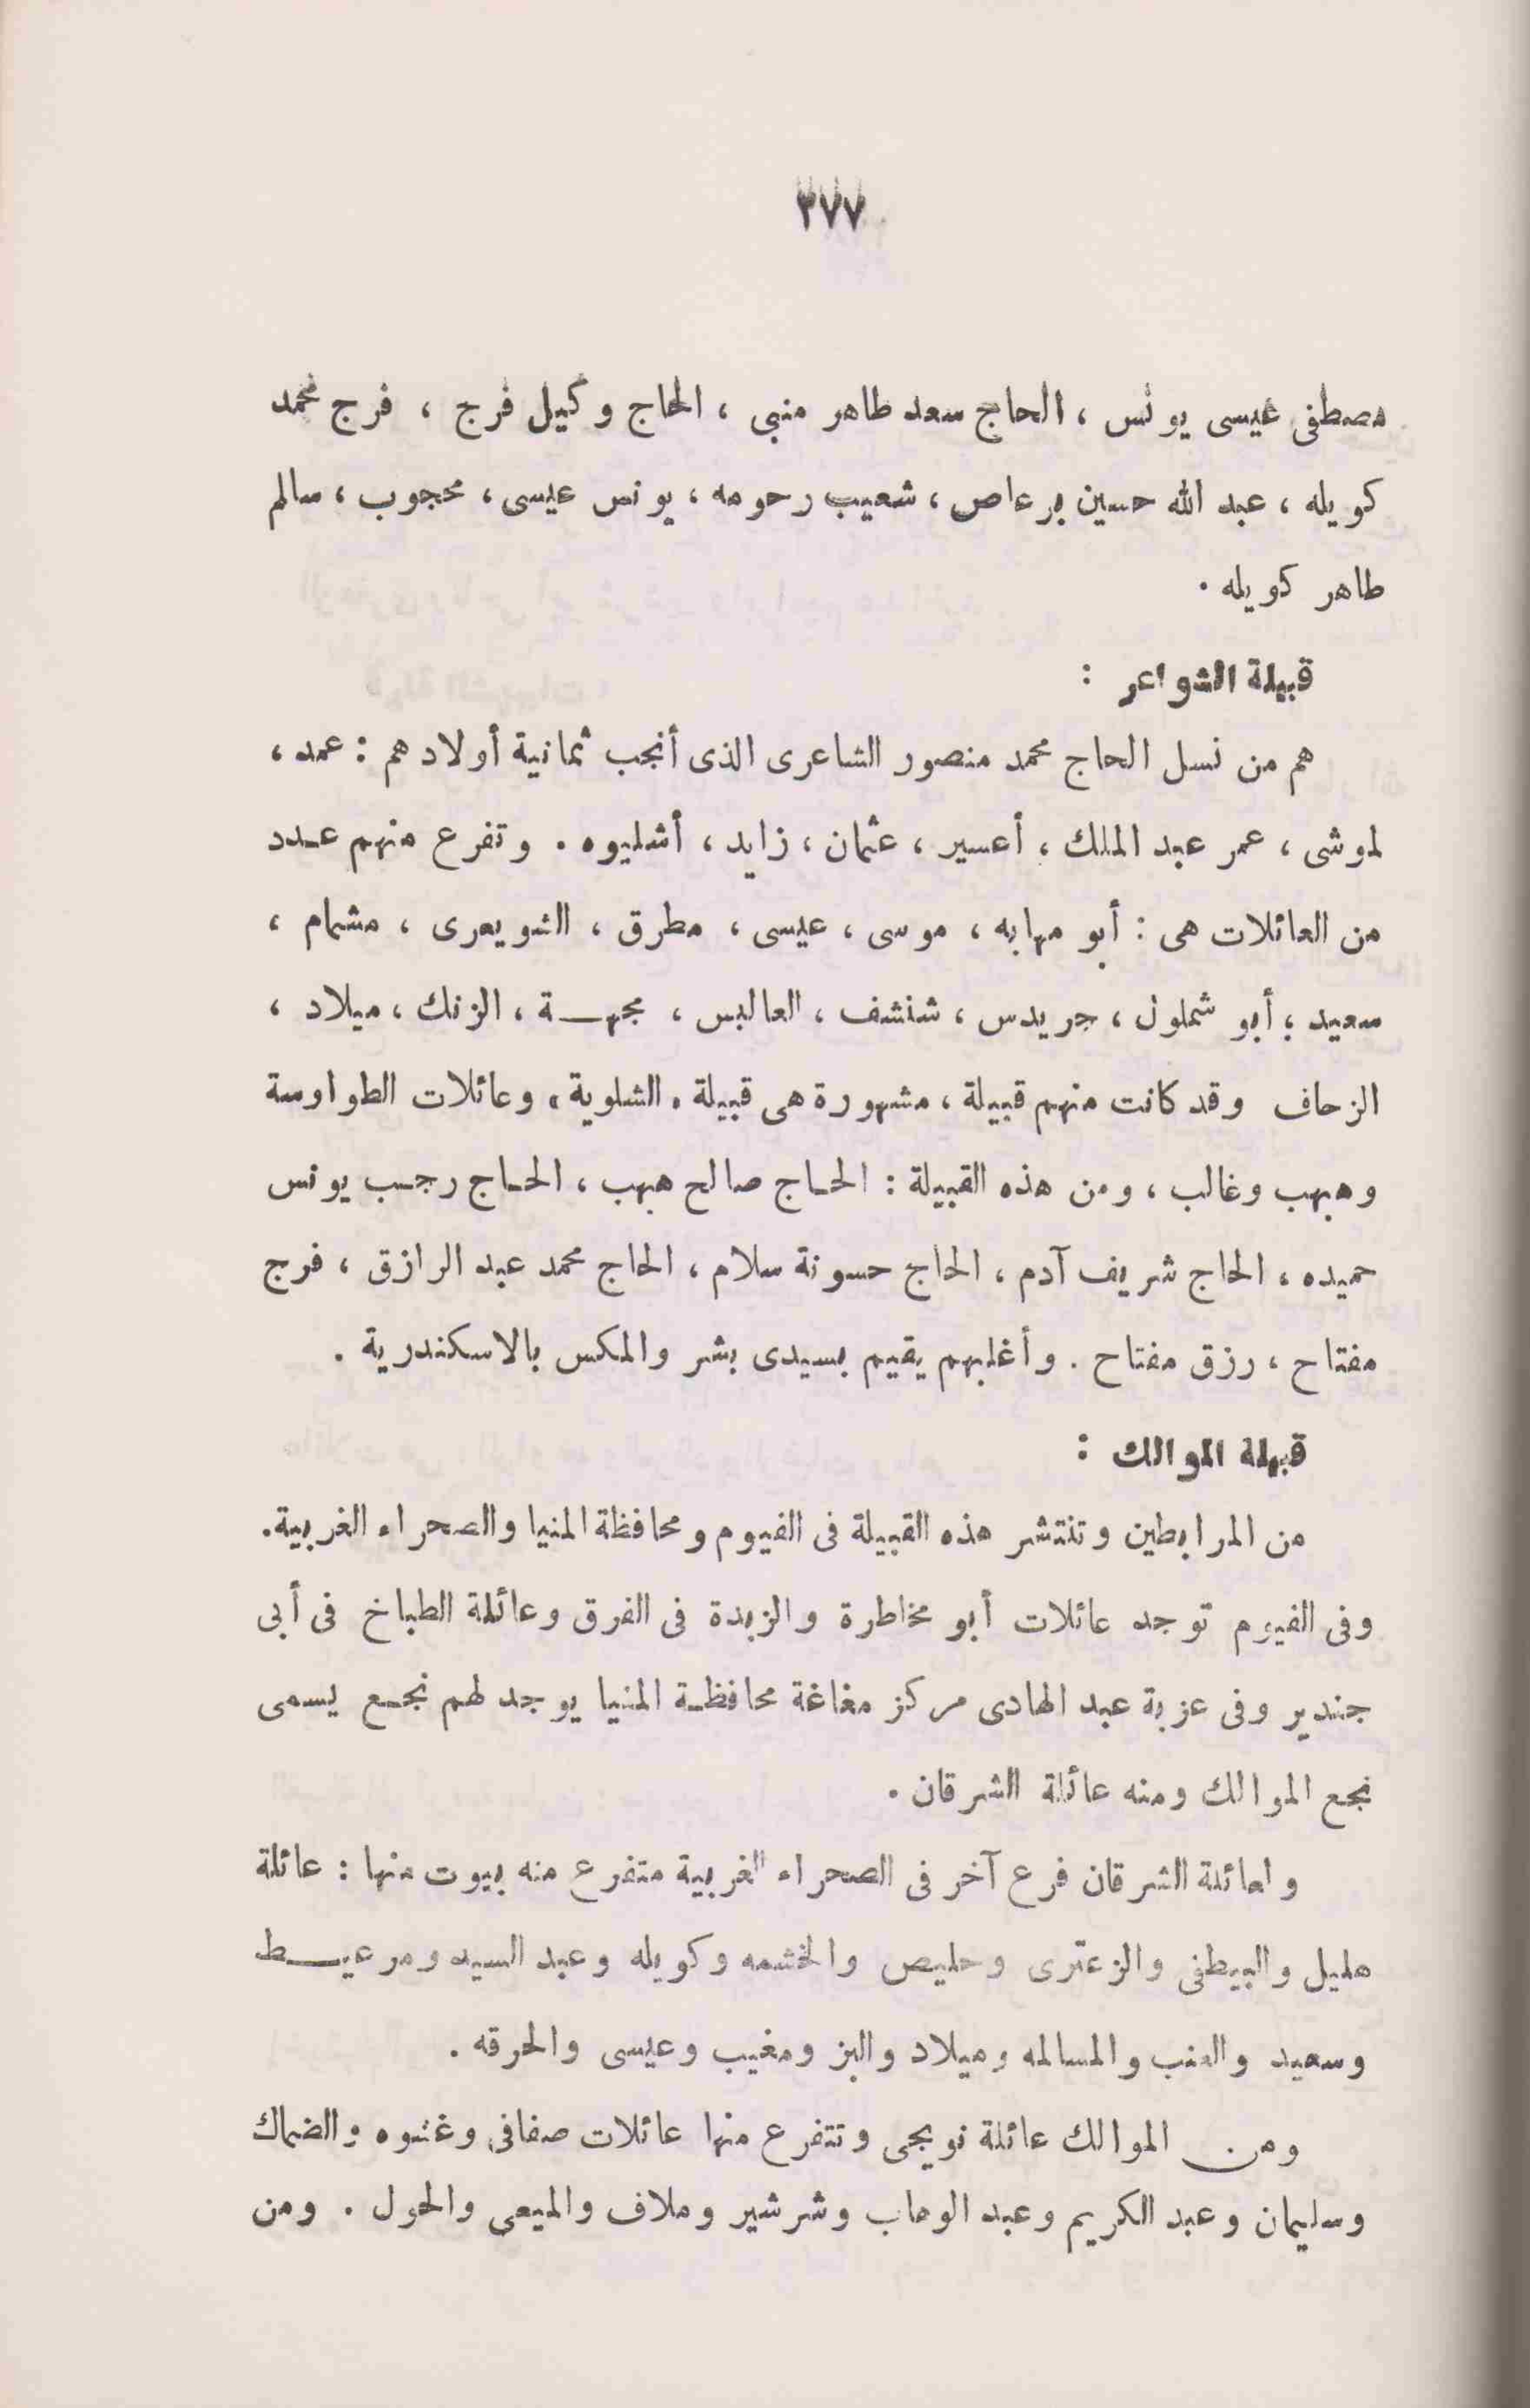 ٣٧٧
مصطفى عيسى يونس ، الحاج سعد طاهر منبى ، الحاج وكيل فرج ، فرج محمد
كويله ، عبد الله حسين برعاص ، شعيب رحومه ، يونس عيسى ، محجوب ، سالم
طاهر كويله .
قبيلة الشواعر :
هم من نسل الحاج محمد منصور الشاعرى الذى أنجب ثمانية أولاد هم : عمد ،
لموشى ، عمر عبد الملك ، أعسير ، عثمان ، زايد ، أشليوه . وتفرع منهم عـدد
من العائلات هى : أبو مهابه ، موسى ، عيسى ، مطرق ، الشويعرى ، مشمام ،
سعيد ، أبو شملول ، جريدس ، شنشف ، العالبس ، مجهـــة ، الزنك ، ميلاد ،
الزحاف وقد كانت منهم قبيلة ، مشهورة هى قبيلة « الشلوية » وعائلات الطواوسة
وهبهب وغالب ، ومن هذه القبيلة : الحـاج صالح هبهب ، الحـاج رجـب يونس
حميده ، الحاج شريف آدم ، الحاج حسونة سلام ، الحاج محمد عبد الرازق ، فرج
مفتاح ، رزق مفتاح . وأغلبهم يقيم بسيدى بشر والمكس بالاسكندرية .
قبيلة الموالك :
من المرابطين وتنتشر هذه القبيلة فى الفيوم ومحافظة المنيا والصحراء الغربية .
وفى الفيوم توجد عائلات أبو مخاطرة والزبدة فى الفرق وعائلة الطباخ فى أبى
جندير وفى عزبة عبد الهادى مركز مغاغة محافظـة المنيا يوجد لهم نجـع يسمى
نجع الموالك ومنه عائلة الشرقان .
ولعائلة الشرقان فرع آخر فى الصحراء الغربية متفرع منه بيوت منها : عائلة
هليل والبيطنى والزعترى وحليص والخشمه وكويله وعبد السيد ومرعيـــط
وسعيد والعنب والمسالمه وميلاد والبز ومغيب وعيسى والحرقه .
ومن الموالك عائلة نويجى وتتفرع منها عائلات صفافى وغنوه والضماك
وسليمان وعبد الكريم وعبد الوهاب وشرشير وملاف والميعى والحول . ومن